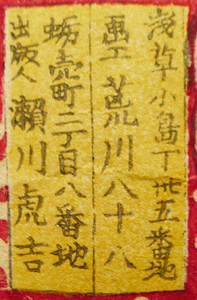 浅草小島丁卅五番地
画工 荒川八十八
蛎売町二丁目八番地
出版人 瀬川虎吉